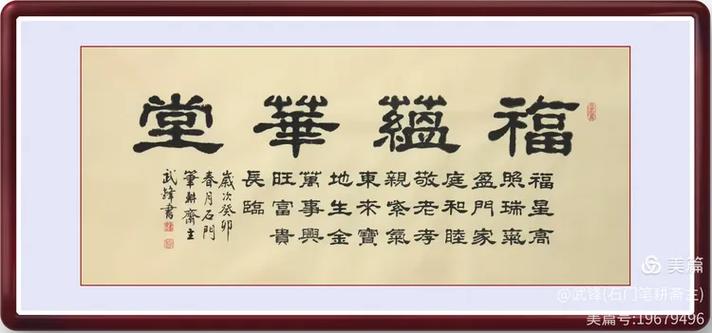 福蘊華堂
福星高
照瑞氣
盈門家
庭和睦
敬老孝
親紫氣
東來寶
地生金
萬事興
旺富貴
長臨
歲次癸卯
春月石門
筆耕齋主
武鋒書
美篇
@武锋(石门笔耕斋主)
美篇号:19679496